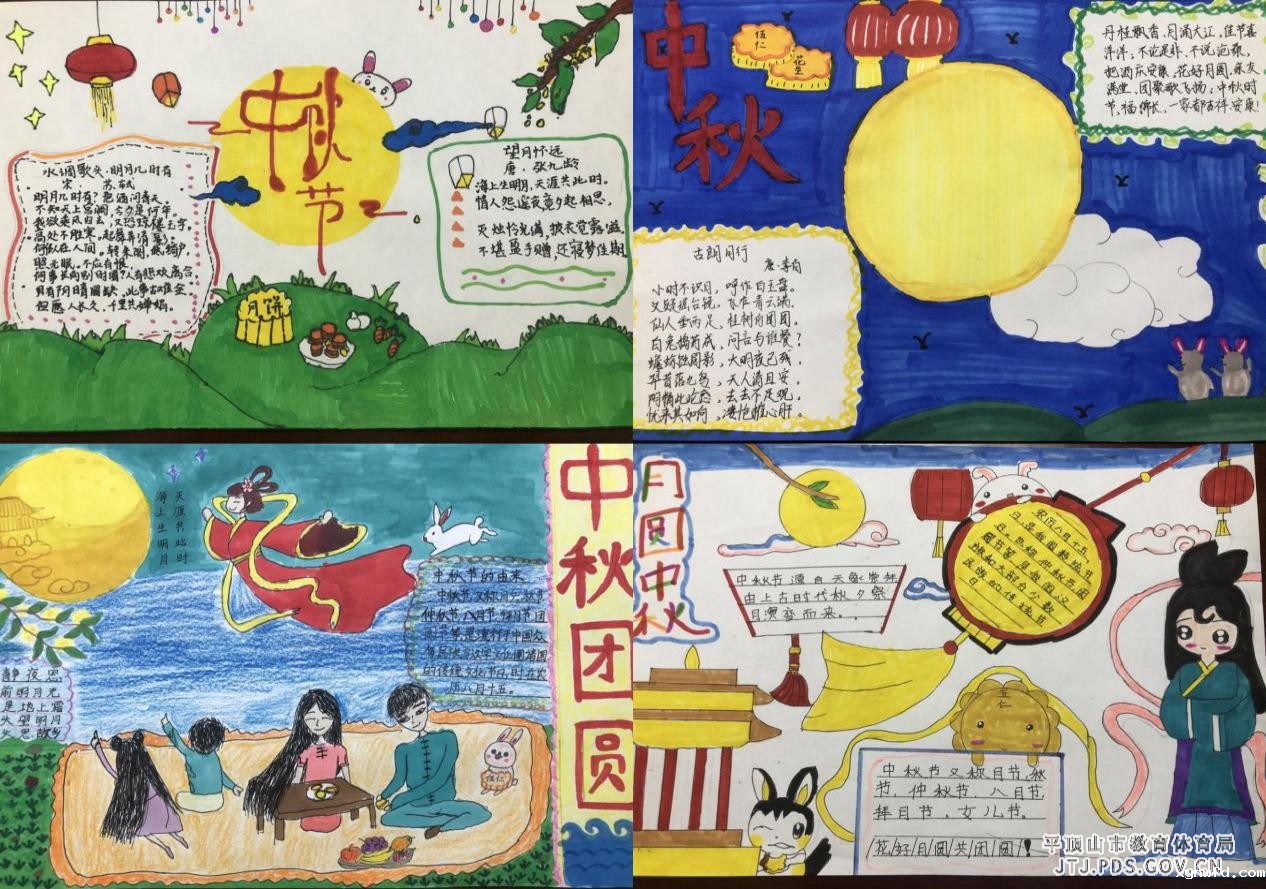 中秋节
水调歌头·明月几时有
宋·苏轼
明月几时有?把酒问青天。
不知天上宫阙,今夕是何年。
我欲乘风归去,又恐琼楼玉宇,
高处不胜寒。起舞弄清影,
何似在人间。转朱阁,低绮户,
照无眠。不应有恨,
何事长向别时圆?人有悲欢离合,
月有阴晴圆缺,此事古难全。
但愿人长久,千里共婵娟。
望月怀远
唐·张九龄
海上生明月,天涯共此时。
情人怨遥夜,竟夕起相思。
灭烛怜光满,披衣觉露滋。
不堪盈手赠,还寝梦佳期
月饼
中秋
伍仁
花生
丹桂飘香,月涌大江,佳节喜
洋洋;不论是非,不说沧桑,
把酒庆安康,花好月圆,亲友
满堂,团聚歌飞扬;中秋时
节,福绵长,一家都吉祥安康!
古朗月行
唐·李白
小时不识月,呼作白玉盘。
又疑瑶台镜,飞在青云端。
仙人垂两足,桂树何团团。
白兔捣药成,问言与谁餐?
蟾蜍蚀圆影,大明夜已残。
羿昔落九乌,天人清且安。
阴精此沦惑,去去不足观。
忧来其如何,凄怆摧心肝。
天涯共此时
海上生明月
中秋团圆
中秋节的由来
中秋节又称月夕、秋节
仲秋节、八月节
的传统文化节日,时在农
历八月十五。
静夜思
前明月光
是地上霜
头望明月
头思故乡
伍仁
月圆中秋
中秋节源自天象崇拜
由上古时代秋夕祭
月演变而来。
农历八月十五
五仁
中秋节又称月节、秋
节、仲秋节、八月节
拜月节、女儿节。
花/好/月/圆/共/团/圆/!
平顶山市教育体育局
JTJ.PDS.GOV.CN
xghwrd.com